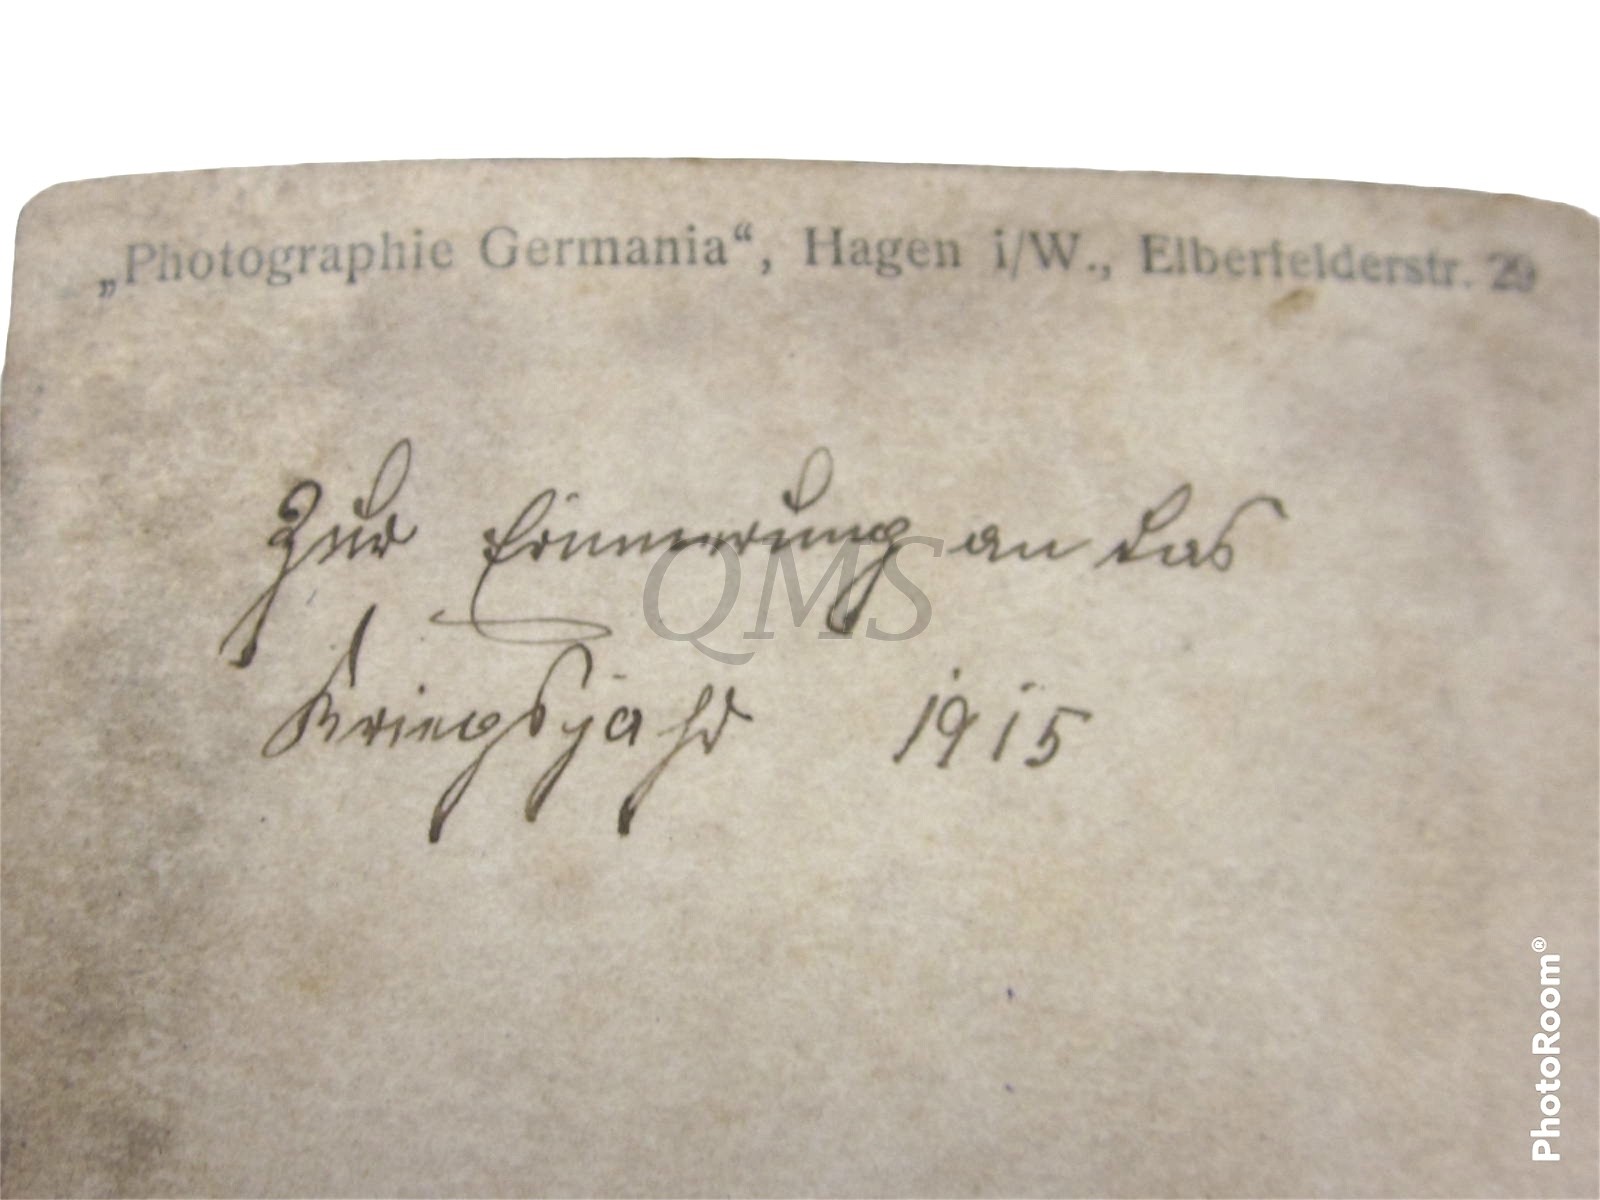 „Photographie Germania“, Hagen i/W., Elberfelderstr. 29
Zur Erinnerung an das
QMS
Kriegsjahr 1915
PhotoRoom®